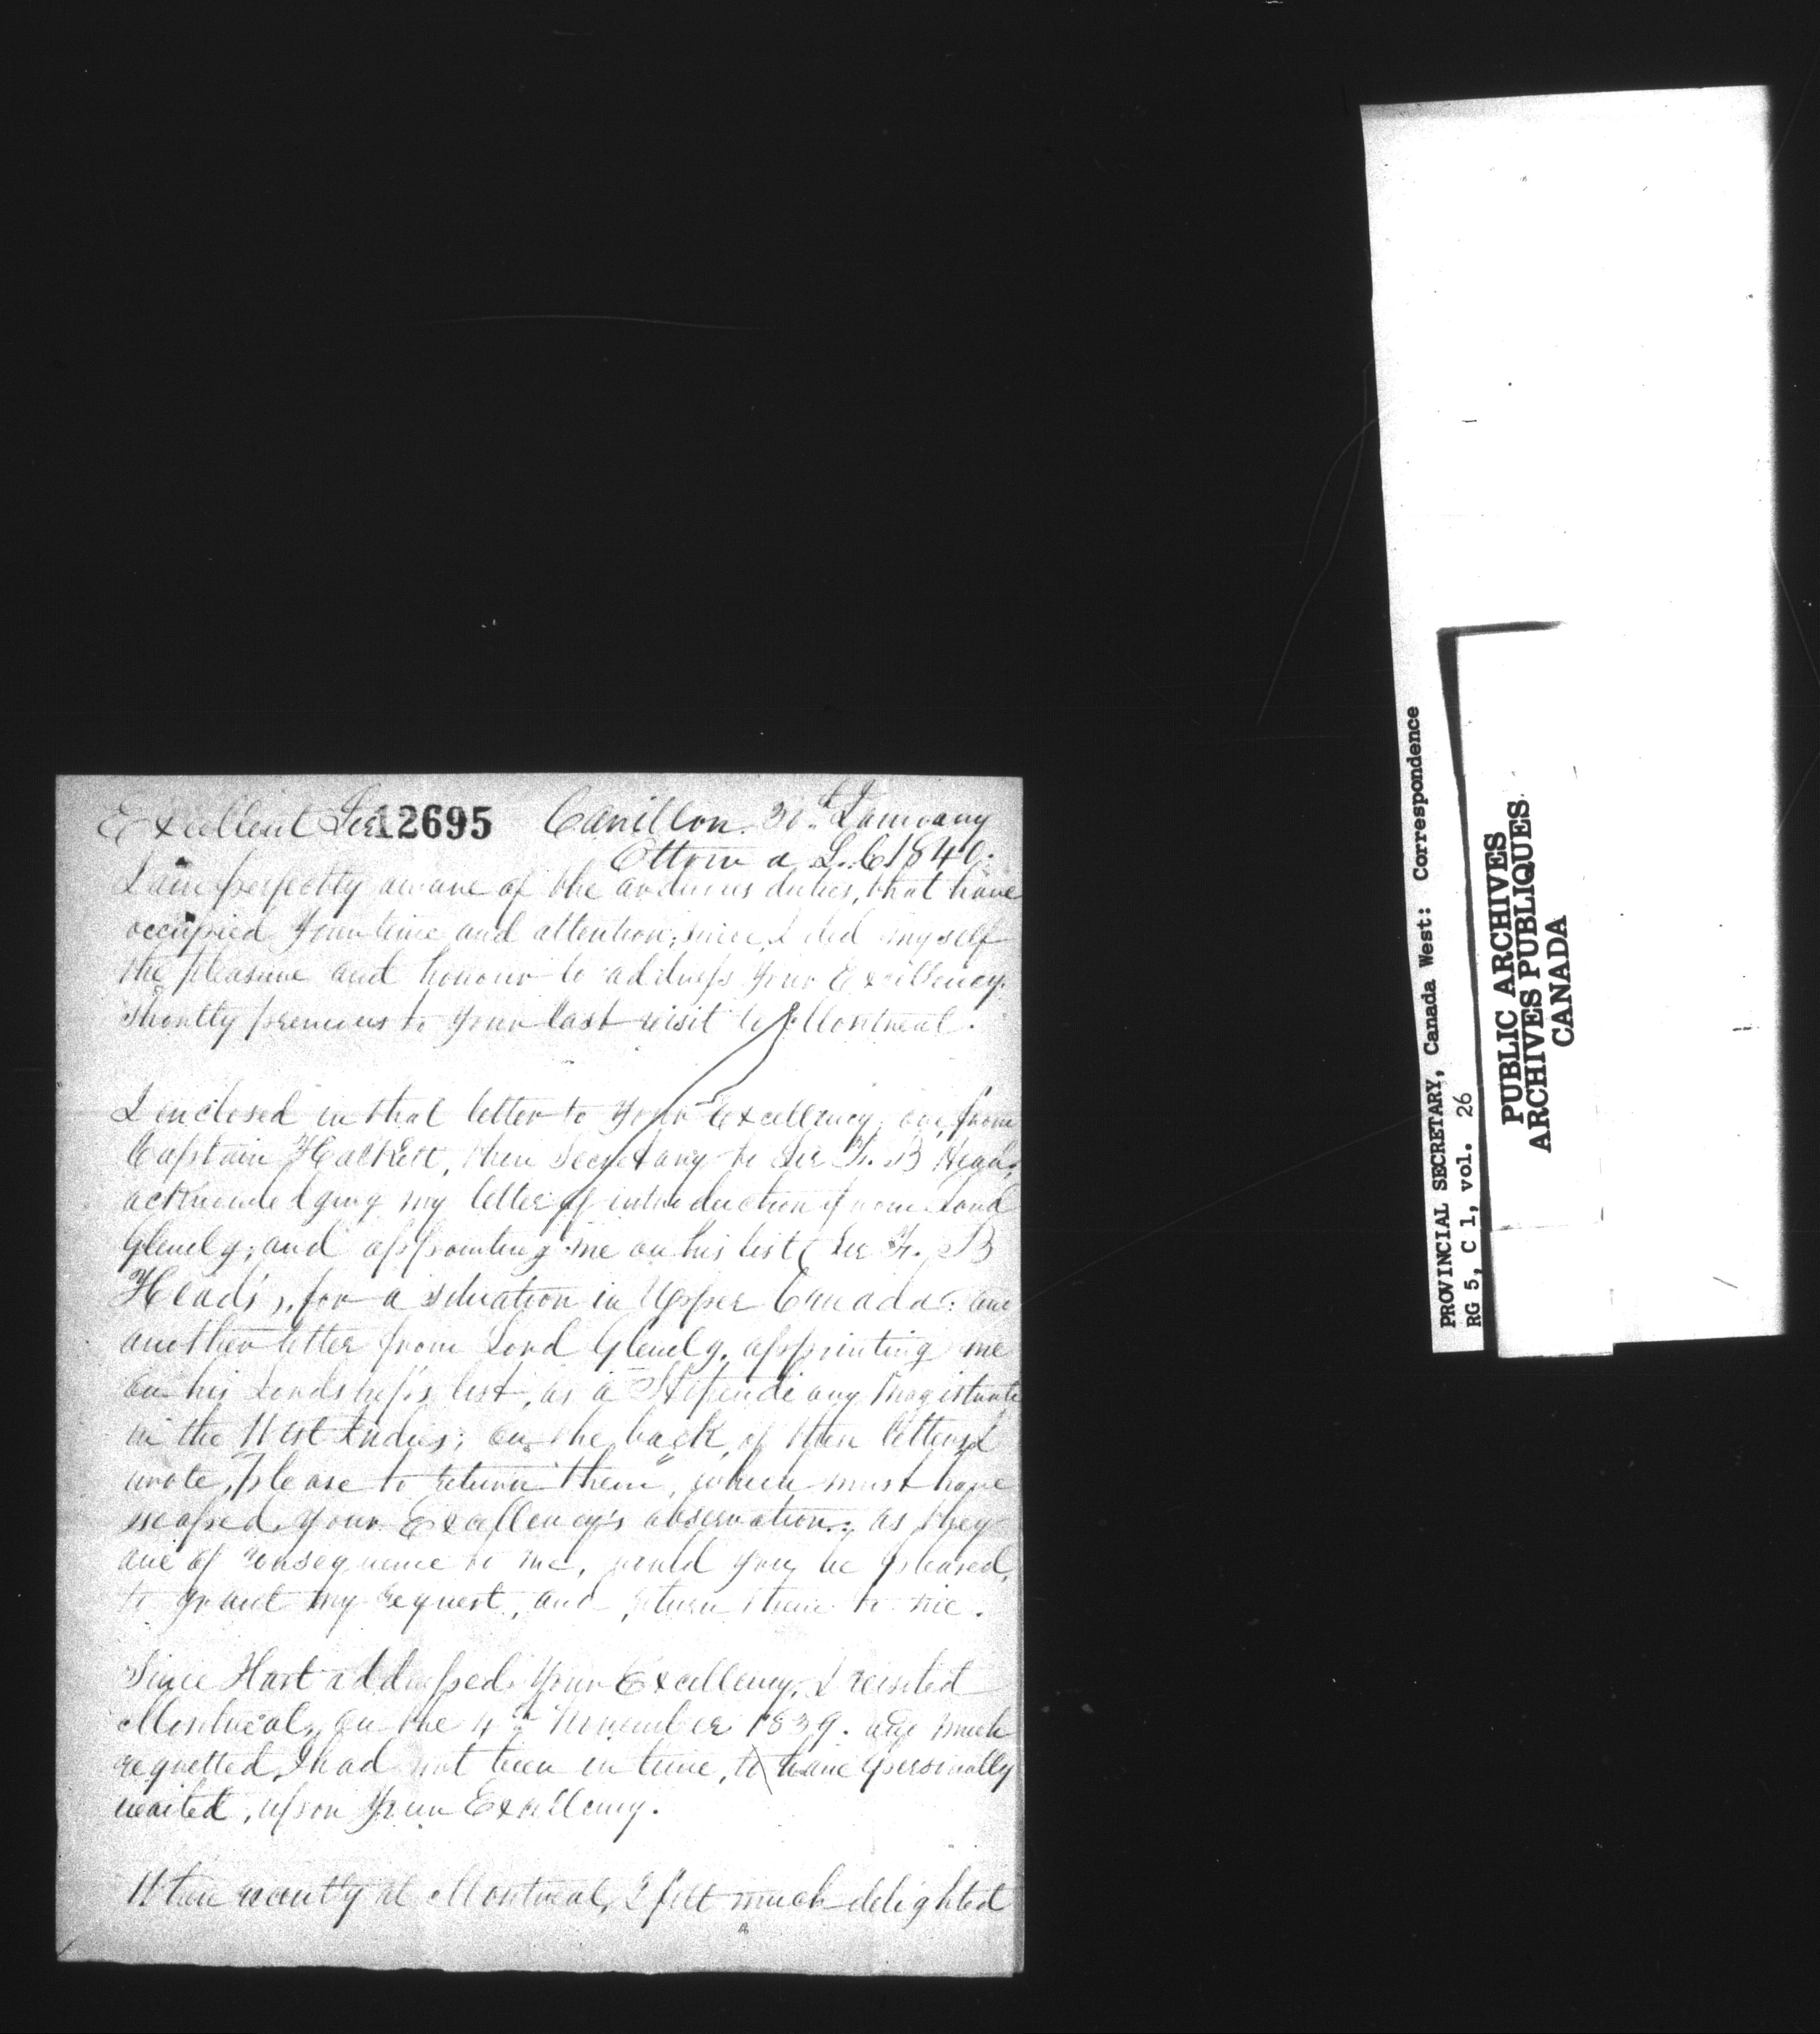 Excellent Sir 12695 Carillon. 30th January
Ottowa L. C 1840.
I am perfectly aware of the arduous duties, that have
occupied Your time and attention; since I did myself
the pleasure and honour to address Your Excellency
shortly previous to Your last visit to Montreal.
I enclosed in that letter to Your Excellency; one from
Captain Halkett, then Secretary to Sir F. B Head,
acknowledging my letter of introduction from Lord
Glenelg; and appointing me on his list (Sir F. B
Head's), for a situation in Upper Canada: and
another letter from Lord Glenelg. appointing me
on his Lordship's list, as a Stipendiary Magistrate
in the West Indies; on the back of these letters I
wrote, "please to return them", which must have
escaped Your Excellency's observation: as they
are of consequence to me, would you be pleased,
to grant my request, and return them to me.
Since I last addressed Your Excellency, I visited
Montreal, on the 4th November 1839. and much
regretted, I had not been in time, to have personally
waited, upon Your Excellency.
When recently at Montreal, I felt much delighted
PROVINCIAL SECRETARY, Canada West: Correspondence
RG 5, C 1, vol. 26
PUBLIC ARCHIVES
ARCHIVES PUBLIQUES
CANADA